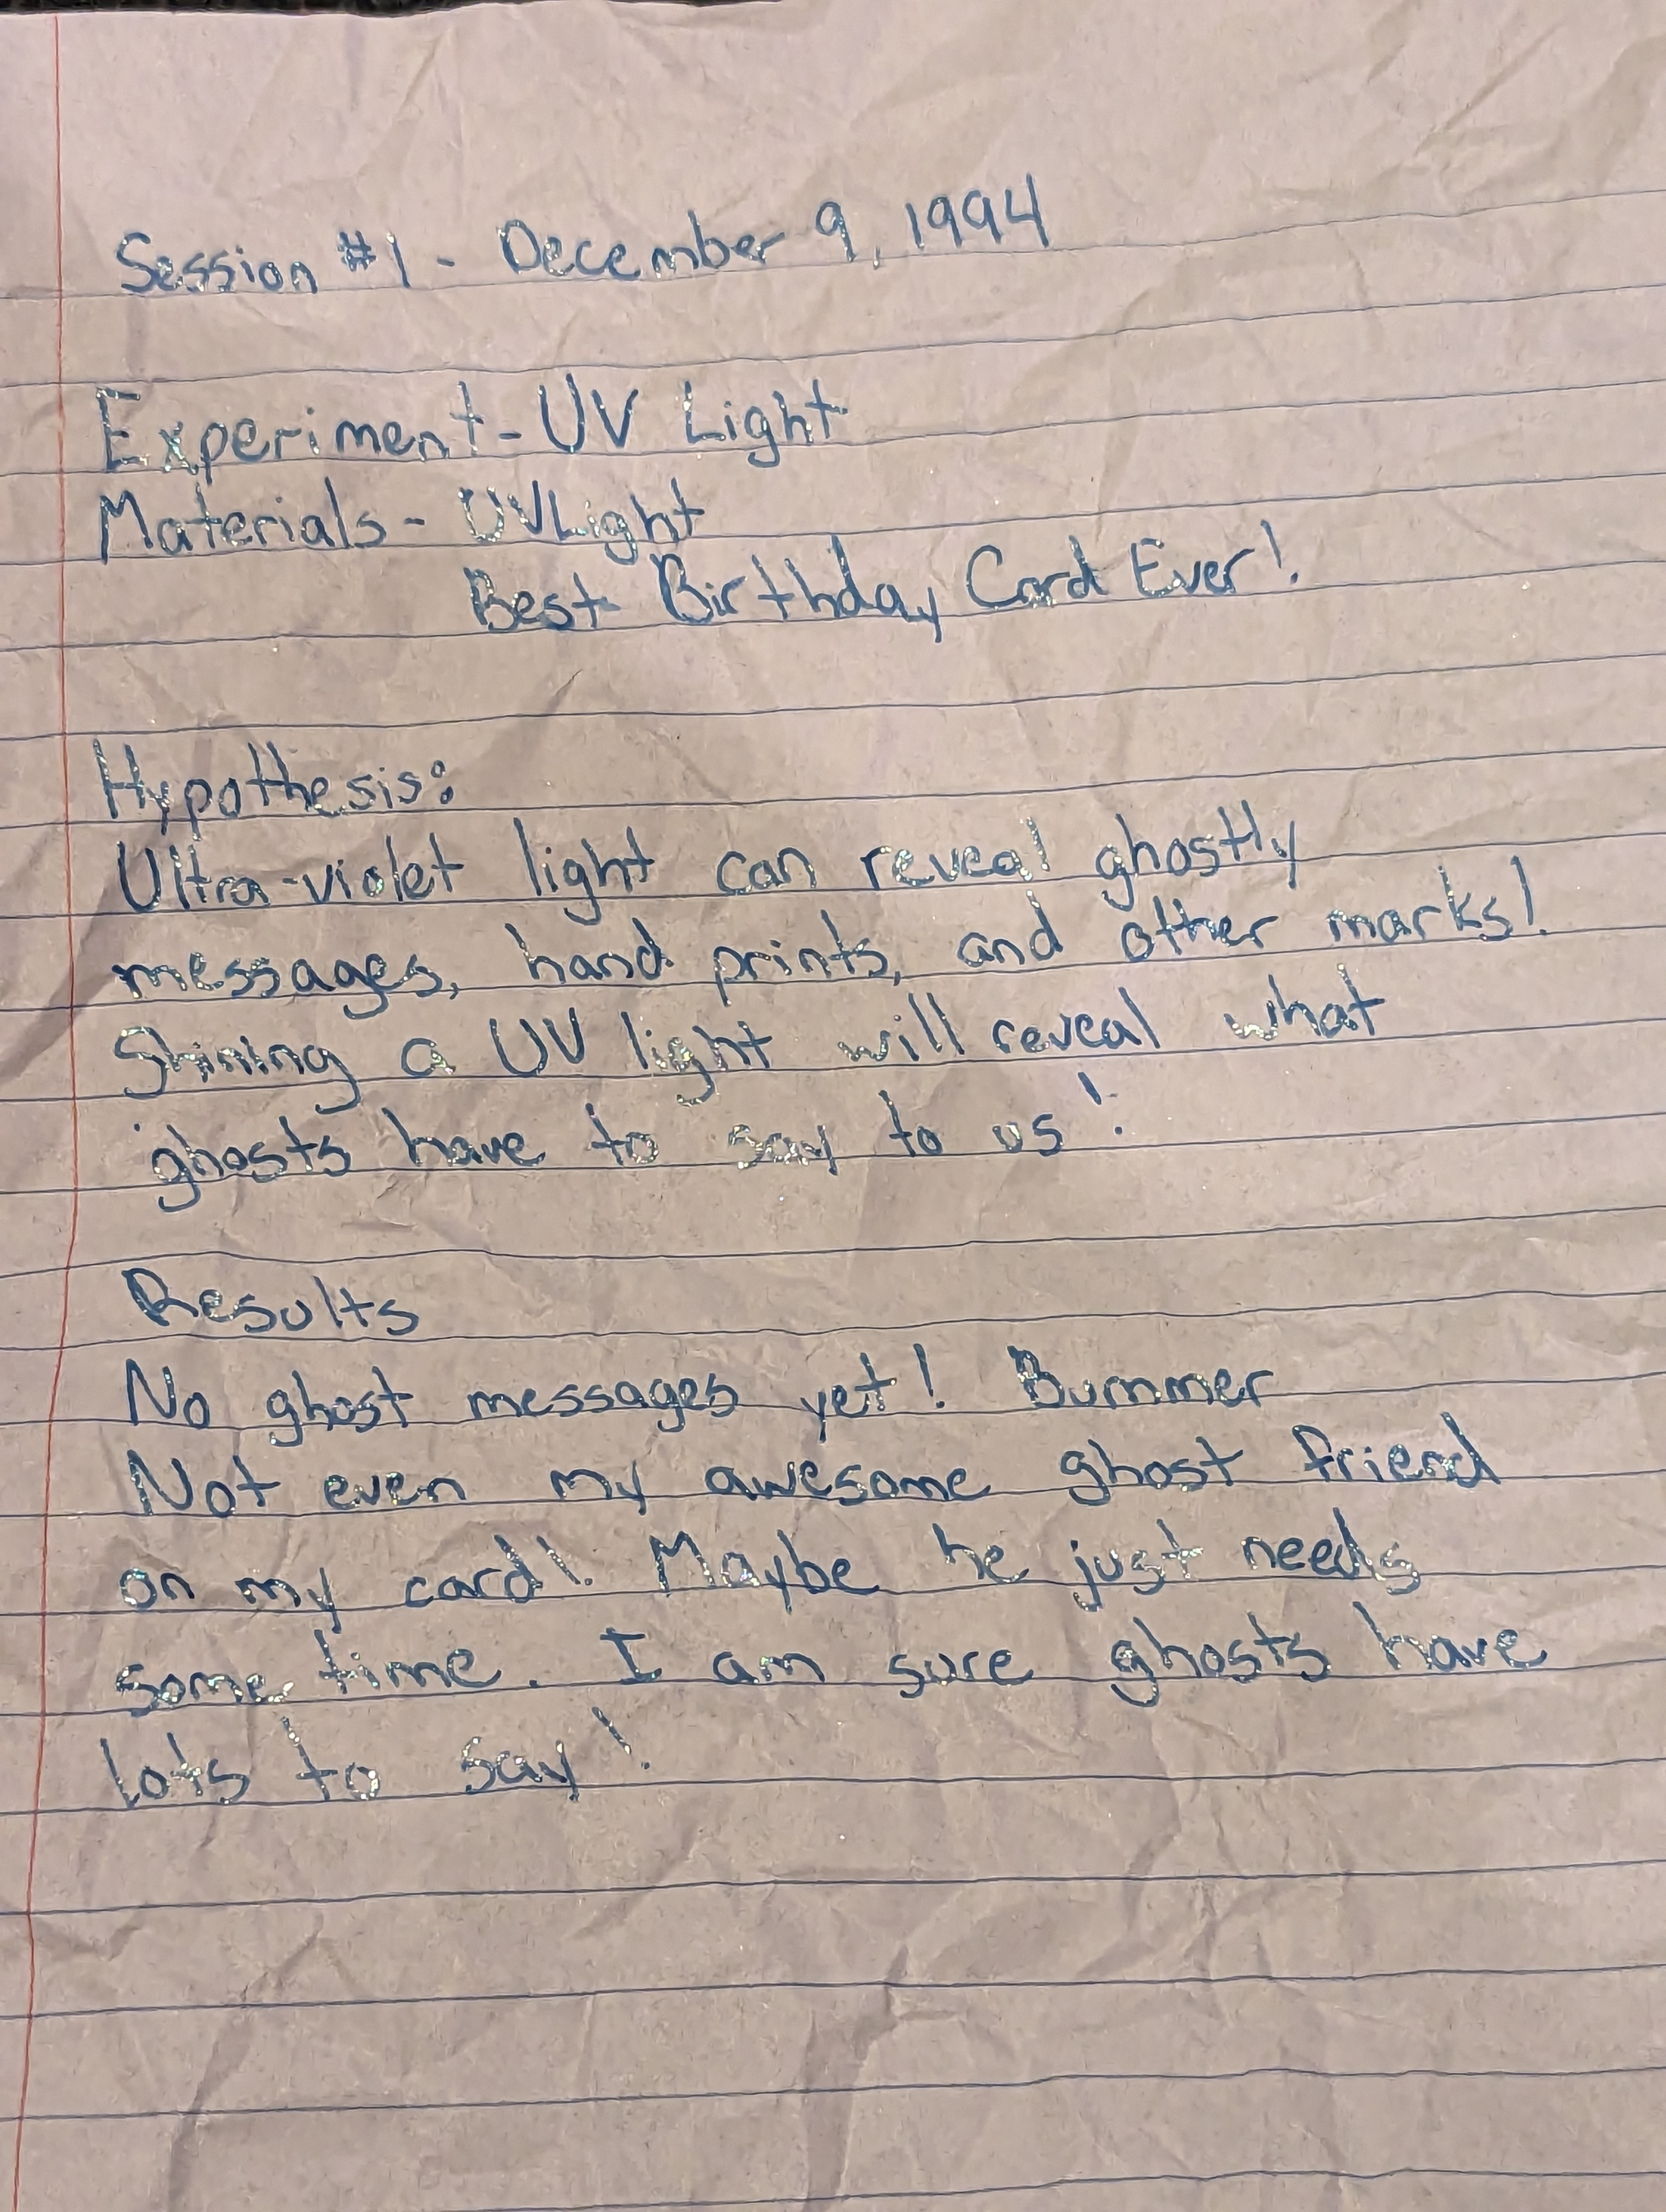 Session #1 - December 9, 1994
Experiment - UV Light
Materials - UV Light
Best Birthday Card Ever!
Hypothesis:
Ultra-violet light can reveal ghostly
messages, hand prints, and other marks!
Shining a UV light will reveal what
ghosts have to say to us!
Results
No ghost messages yet! Bummer
Not even my awesome ghost friend
on my card! Maybe he just needs
some time. I am sure ghosts have
lots to say!